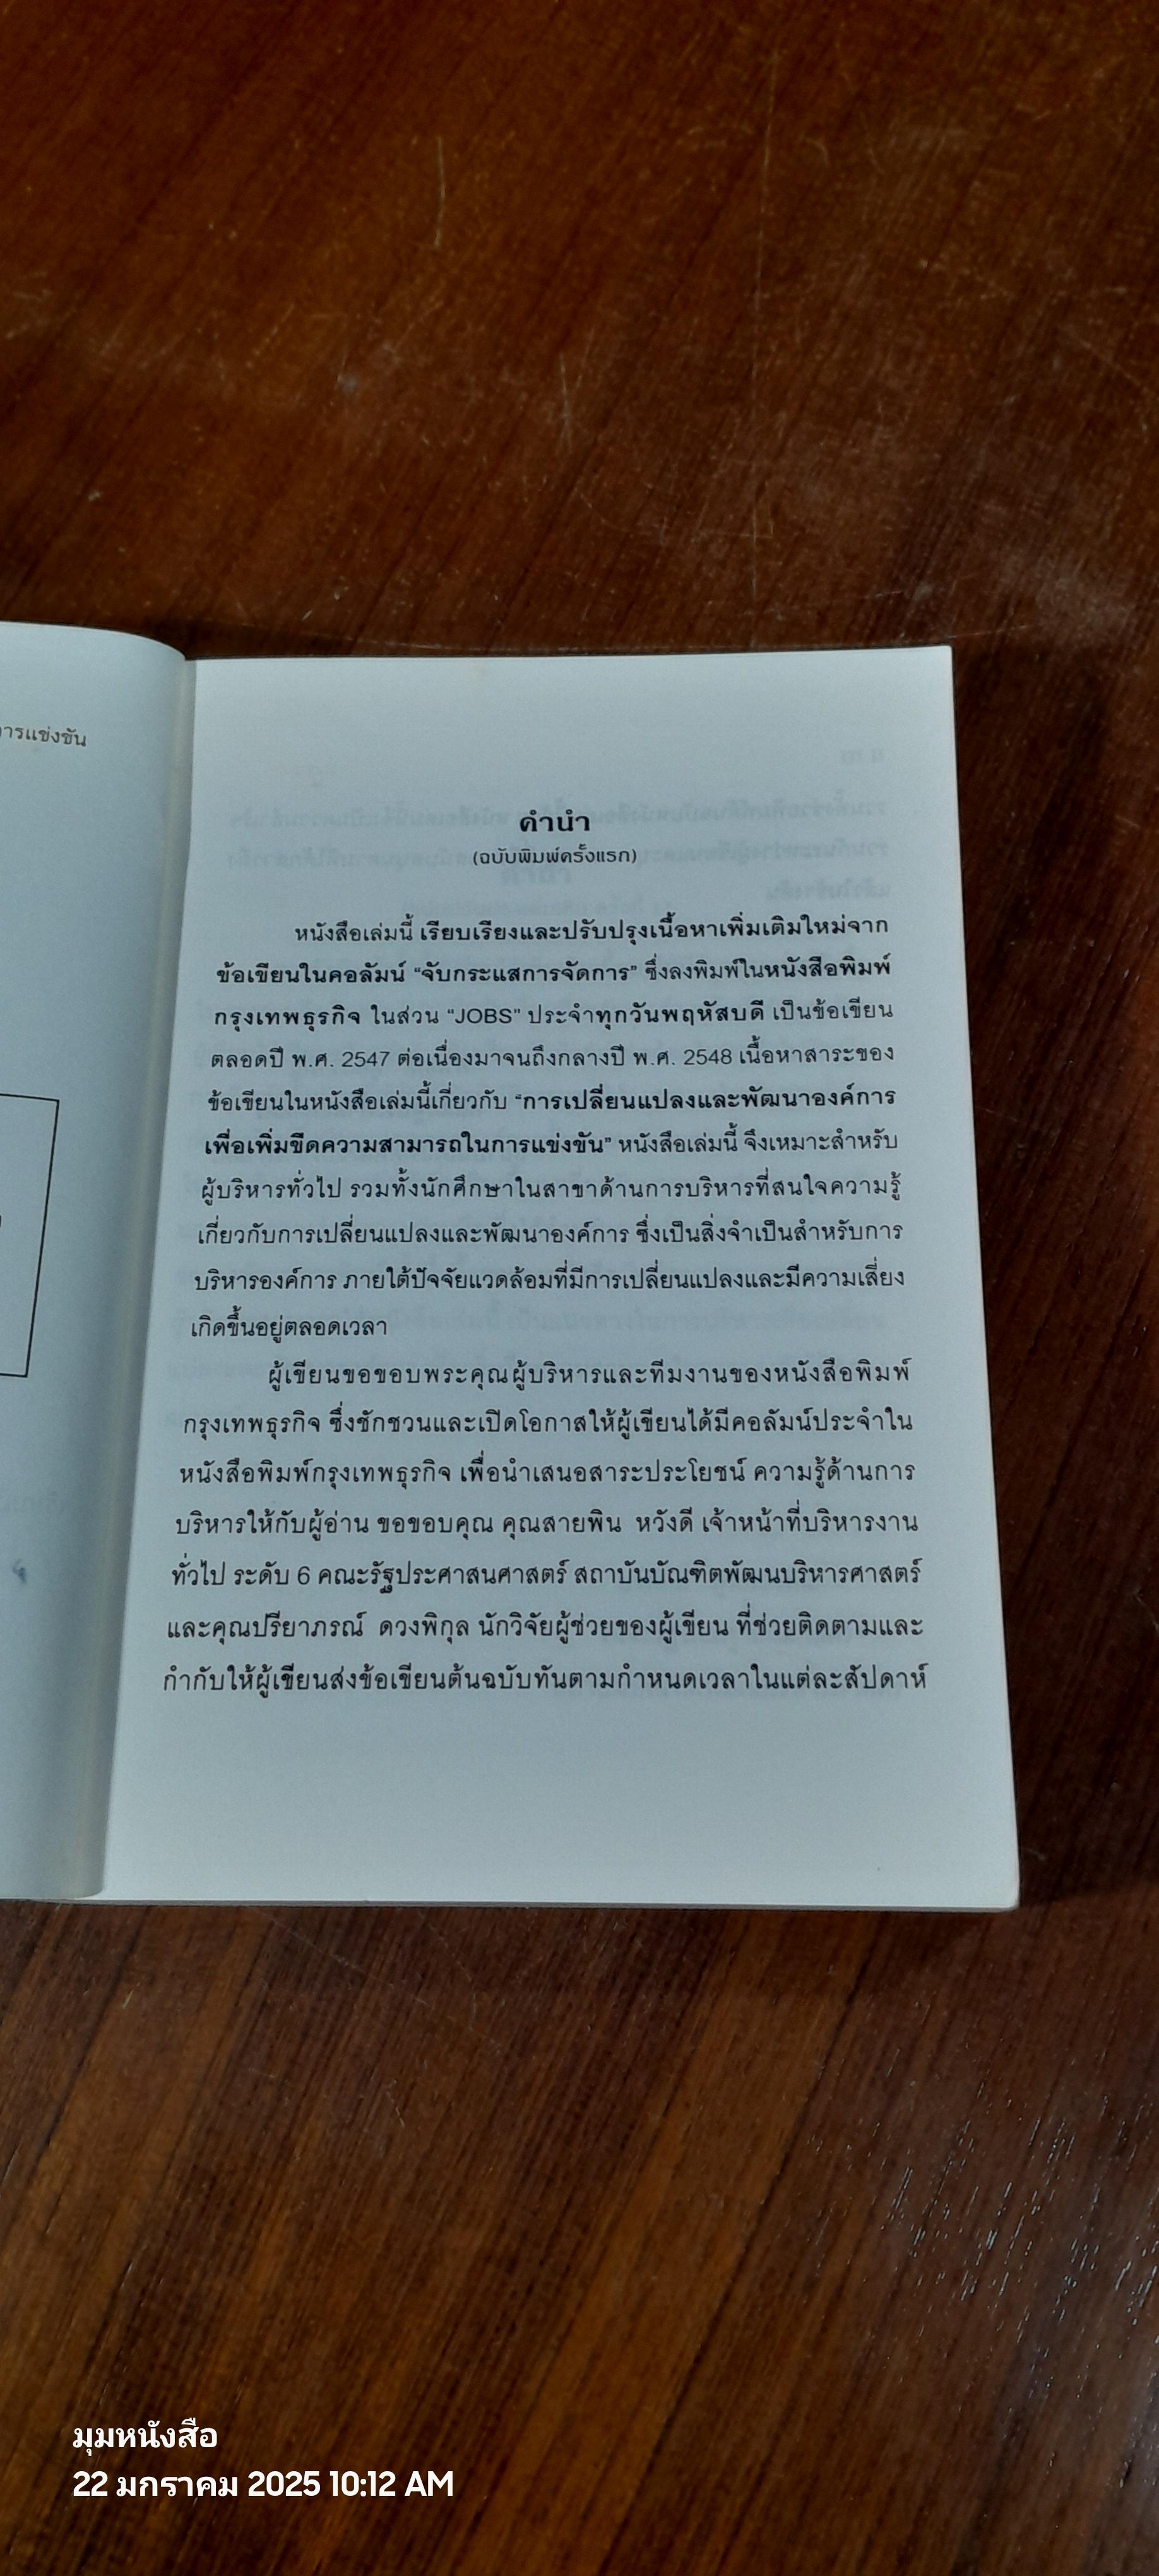 ารแข่งขัน
คำนำ
(ฉบับพิมพ์ครั้งแรก)
หนังสือเล่มนี้ เรียบเรียงและปรับปรุงเนื้อหาเพิ่มเติมใหม่จาก
ข้อเขียนในคอลัมน์ “จับกระแสการจัดการ” ซึ่งลงพิมพ์ในหนังสือพิมพ์
กรุงเทพธุรกิจ ในส่วน “JOBS” ประจำทุกวันพฤหัสบดี เป็นข้อเขียน
ตลอดปี พ.ศ. 2547 ต่อเนื่องมาจนถึงกลางปี พ.ศ. 2548 เนื้อหาสาระของ
ข้อเขียนในหนังสือเล่มนี้เกี่ยวกับ “การเปลี่ยนแปลงและพัฒนาองค์การ
เพื่อเพิ่มขีดความสามารถในการแข่งขัน” หนังสือเล่มนี้ จึงเหมาะสำหรับ
ผู้บริหารทั่วไป รวมทั้งนักศึกษาในสาขาด้านการบริหารที่สนใจความรู้
เกี่ยวกับการเปลี่ยนแปลงและพัฒนาองค์การ ซึ่งเป็นสิ่งจำเป็นสำหรับการ
บริหารองค์การ ภายใต้ปัจจัยแวดล้อมที่มีการเปลี่ยนแปลงและมีความเสี่ยง
เกิดขึ้นอยู่ตลอดเวลา
ผู้เขียนขอขอบพระคุณผู้บริหารและทีมงานของหนังสือพิมพ์
กรุงเทพธุรกิจ ซึ่งชักชวนและเปิดโอกาสให้ผู้เขียนได้มีคอลัมน์ประจำใน
หนังสือพิมพ์กรุงเทพธุรกิจ เพื่อนำเสนอสาระประโยชน์ ความรู้ด้านการ
บริหารให้กับผู้อ่าน ขอขอบคุณ คุณสายพิน หวังดี เจ้าหน้าที่บริหารงาน
ทั่วไป ระดับ 6 คณะรัฐประศาสนศาสตร์ สถาบันบัณฑิตพัฒนบริหารศาสตร์
และคุณปรียาภรณ์ ดวงพิกุล นักวิจัยผู้ช่วยของผู้เขียน ที่ช่วยติดตามและ
กำกับให้ผู้เขียนส่งข้อเขียนต้นฉบับทันตามกำหนดเวลาในแต่ละสัปดาห์
มุมหนังสือ
22 มกราคม 2025 10:12 AM